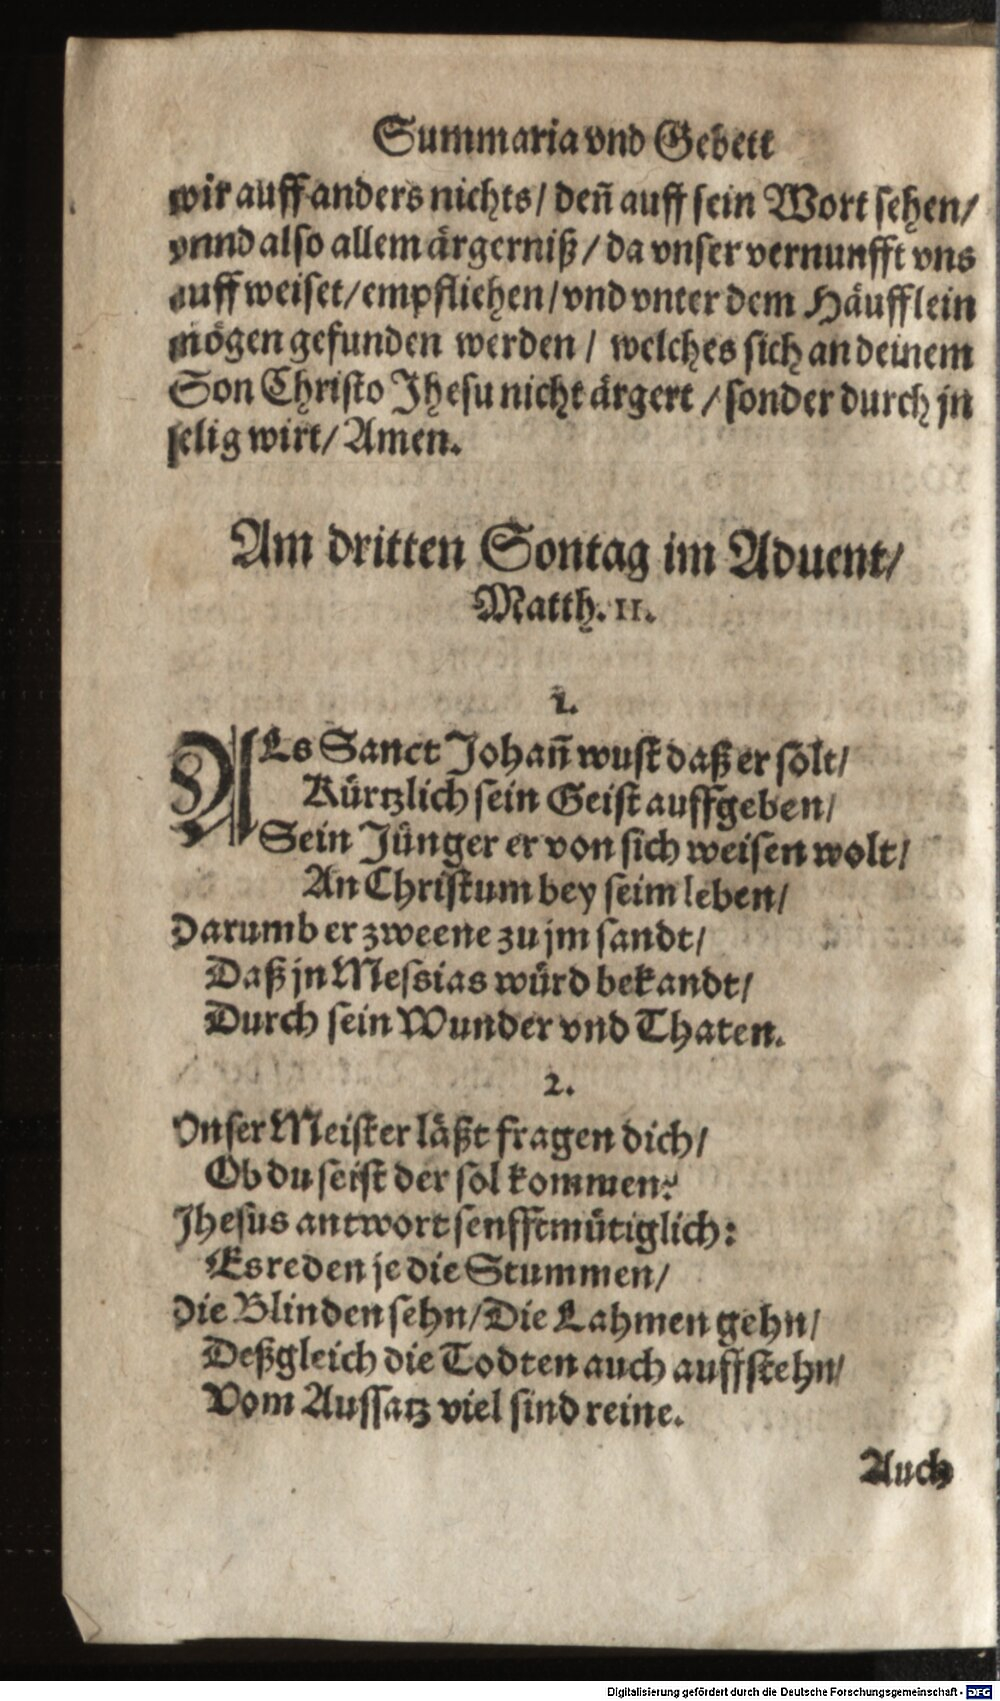 Summaria vnd Gebett
wir auff anders nichts/ deñ auff sein Wort sehen/
vnnd also allem ärgerniß/ da vnser vernunfft vns
auff weiset/ empfliehen/ vnd vnter dem Häufflein
mögen gefunden werden/ welches sich an deinem
Son Christo Jhesu nicht ärgert/ sonder durch jn
selig wirt/ Amen.
Am dritten Sontag im Aduent/
Matth. 11.
1.
ALs Sanct Johañ wust daß er solt/
Kürtzlich sein Geist auffgeben/
Sein Jünger er von sich weisen wolt/
An Christum bey seim leben/
Darumb er zweene zu jm sandt/
Daß jn Messias würd bekandt/
Durch sein Wunder vnd Thaten.
2.
Vnser Meister läßt fragen dich/
Ob du seist der sol kommen?
Jhesus antwort senfftmütiglich:
Es reden je die Stummen/
Die Blinden sehn/ Die Lahmen gehn/
Deßgleich die Todten auch auffstehn/
Vom Aussatz viel sind reine.
Auch
Digitalisierung gefördert durch die Deutsche Forschungsgemeinschaft - DFG